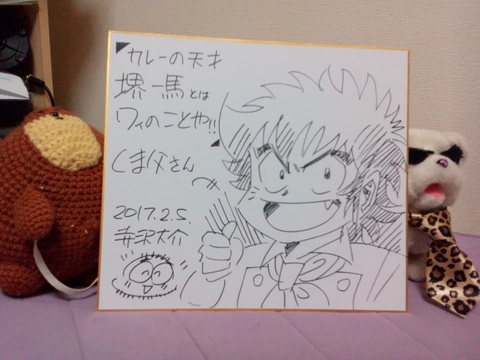 カレーの天才
堺一馬とは
ワイのことや!!
くま父さんへ
2017.2.5.
寺沢大介